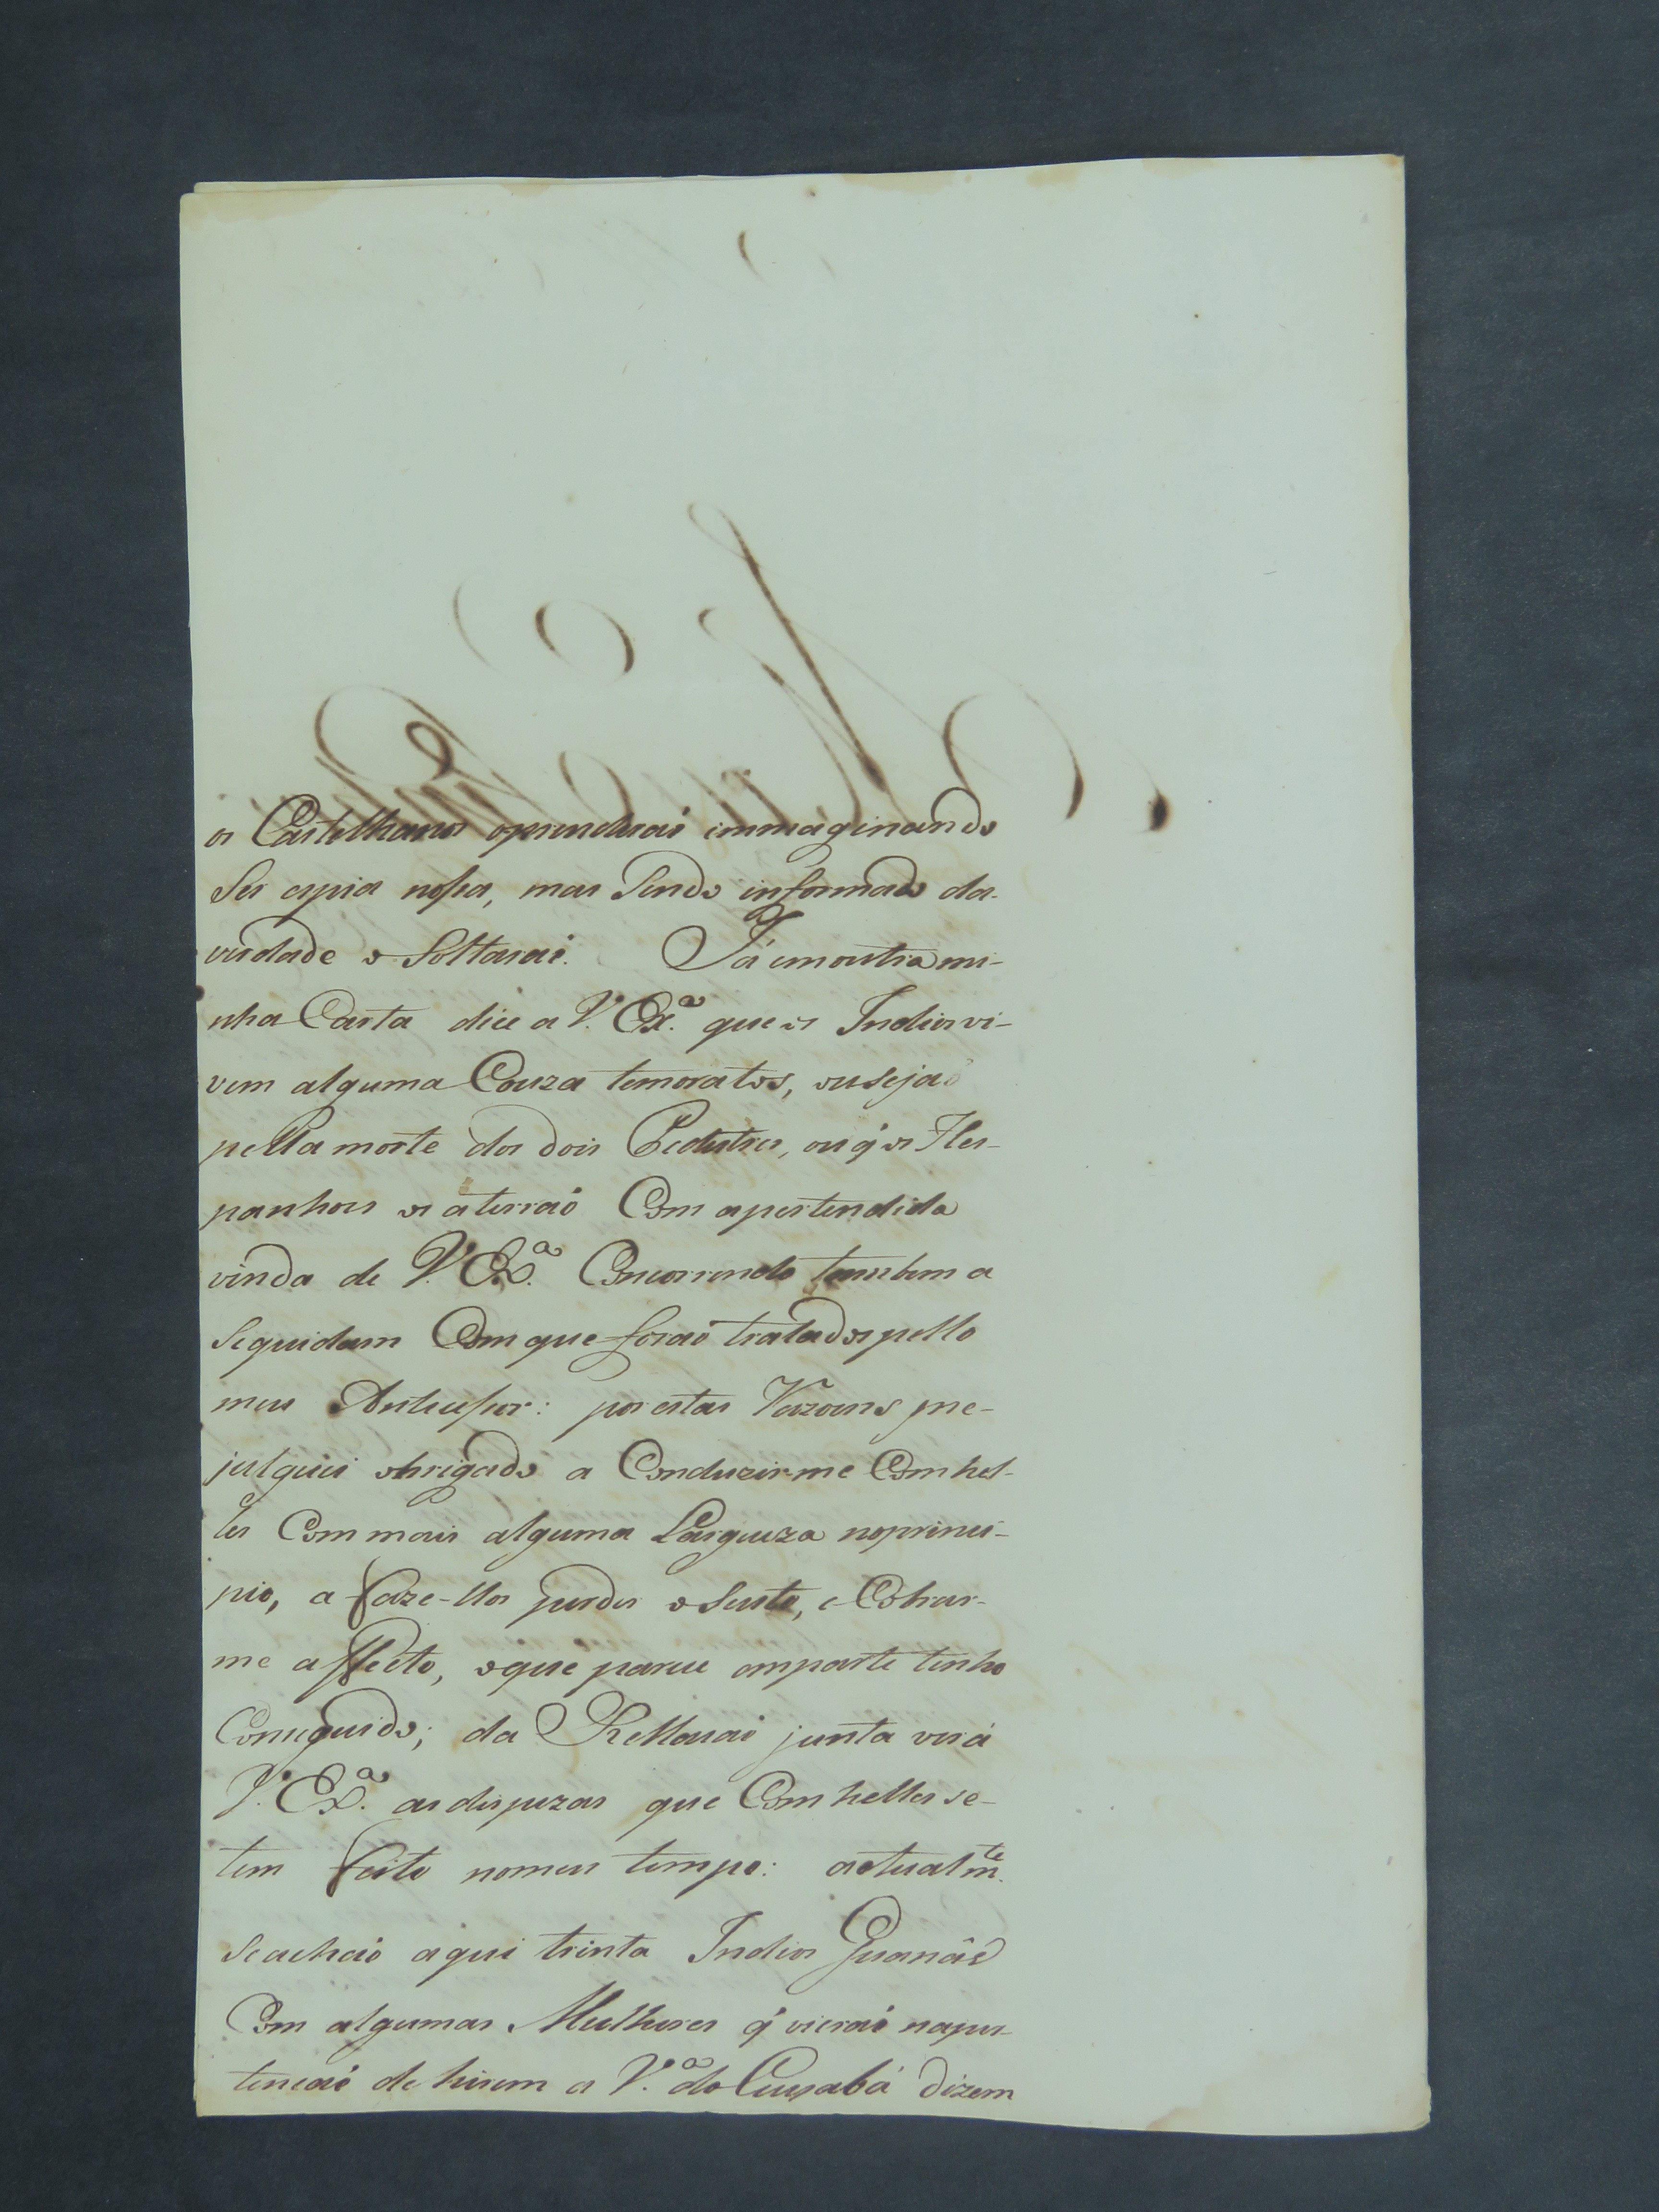 os Castelhanos oprenderaõ immaginando
Ser espia nossa, mas Sendo informado da
verdade o Soltaraõ. Já emoutra mi-
nha Carta dice a V. Ex.ª que os Indios vi-
vem alguma Couza temoratos, ou sejaõ
pella morte dos dois Pedestres, ou q̃ os Hes-
panhoes os aterraõ Com apertendida
vinda de V. Ex.ª Concorrendo tambem a
Sequidam Com que foraõ tratados pello
meu Antessesor: por estas Razoens me-
julguei obrigado a Conduzir-me Com hel-
les Com mais alguma Largueza noprinci-
pio, a faze-llos perder o Susto, e Cobrar-
me affecto, oque parece emparte tenho
Coneguido; da Rellaçaõ junta verá
V. Ex.ª as dispezas que Com helles se-
tem feito nomeu tempo: actualm.te
Se achaõ aqui trinta Indios Guanâs
Com algumas Mulheres q̃ vieraõ naper-
tençaõ de hirem a V.ª do Cuyabá dizem